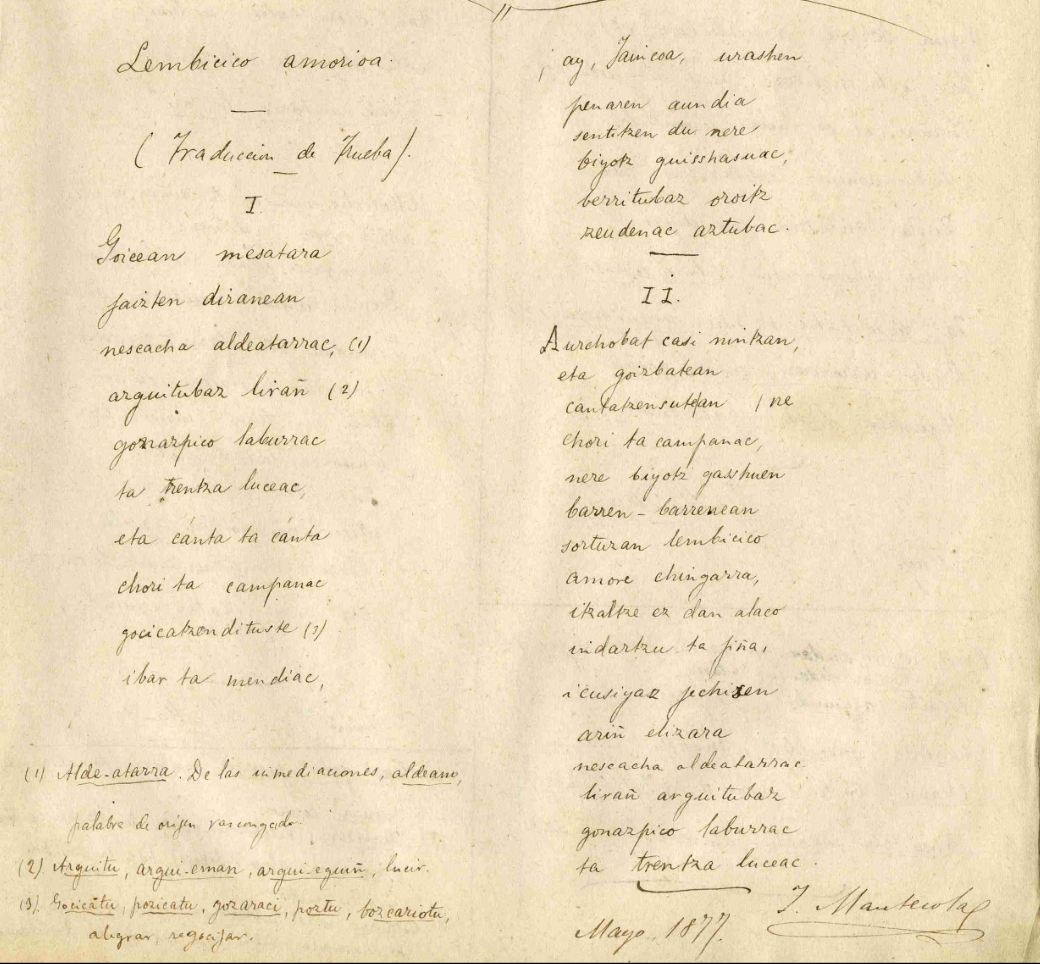 Lembicico amorioa.
(Traduccion de Trueba).
I.
Goicean mesatara
jaizten diranean
nescacha aldeatarrac, (1)
arguitubaz lirañ (2)
gonazpico laburrac
ta trentza luceac,
eta cánta ta cánta
chori ta campanac
gocicatzendituste (3)
ibar ta mendiac,
(1) Alde-atarra. De las inmediaciones, aldeano,
palabra de origen vascongado.
(2) Arguitu, argui-eman, argui-eguiñ, lucir.
(3). Gocicatu, pozicatu, gozaraci, poztu, bozcariotu,
alegrar, regocijar.
¡ay, Jaincoa, urashen
penaren aundia
sentitzen du nere
biyotz guisshasuac,
berritubaz oroitz
zeudenac aztubac.
II.
Aurchobat casi nintzan,
eta goizbatean
cantatzensutean / ne
chori ta campanac,
nere biyotz gasshuen
barren-barrenean
sortuzan lembicico
amore chingarra,
itzaltze ez dan alaco
indartzu ta fiña,
icusiyaz jechitzen
ariñ elizara
nescacha aldeatarrac
lirañ arguitubaz
gonazpico laburrac
ta trentza luceac.
Mayo, 1877.
J. Manterola